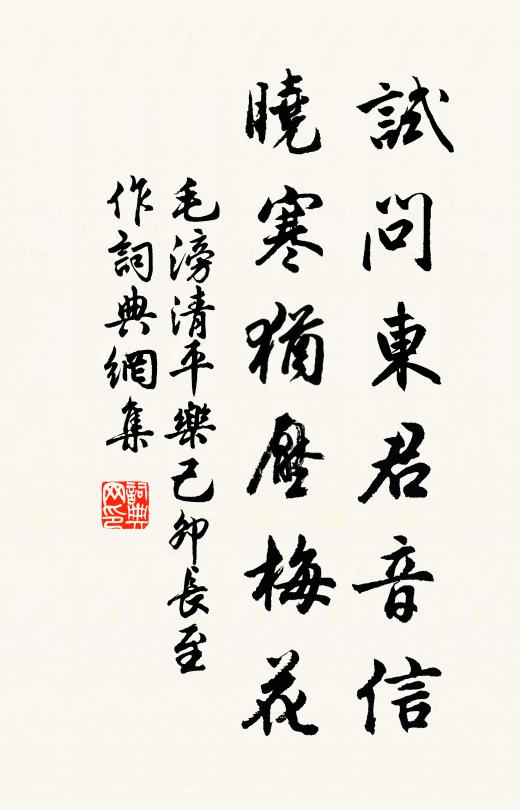 試問東君音信
曉寒猶壓梅花
毛滂清平樂己卯長至
作詞典網集
詞典
网印